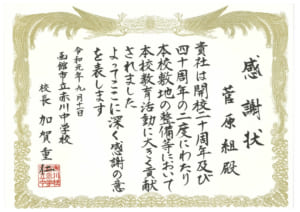 感謝状
菅原組殿
貴社は開校二十周年及び
四十周年の二度にわたり
本校敷地の整備等において
本校教育活動に大きく貢献
されました
よってここに深く感謝の意
を表します
令和元年九月十一日
函館市立赤川中学校
校長 加賀重仁